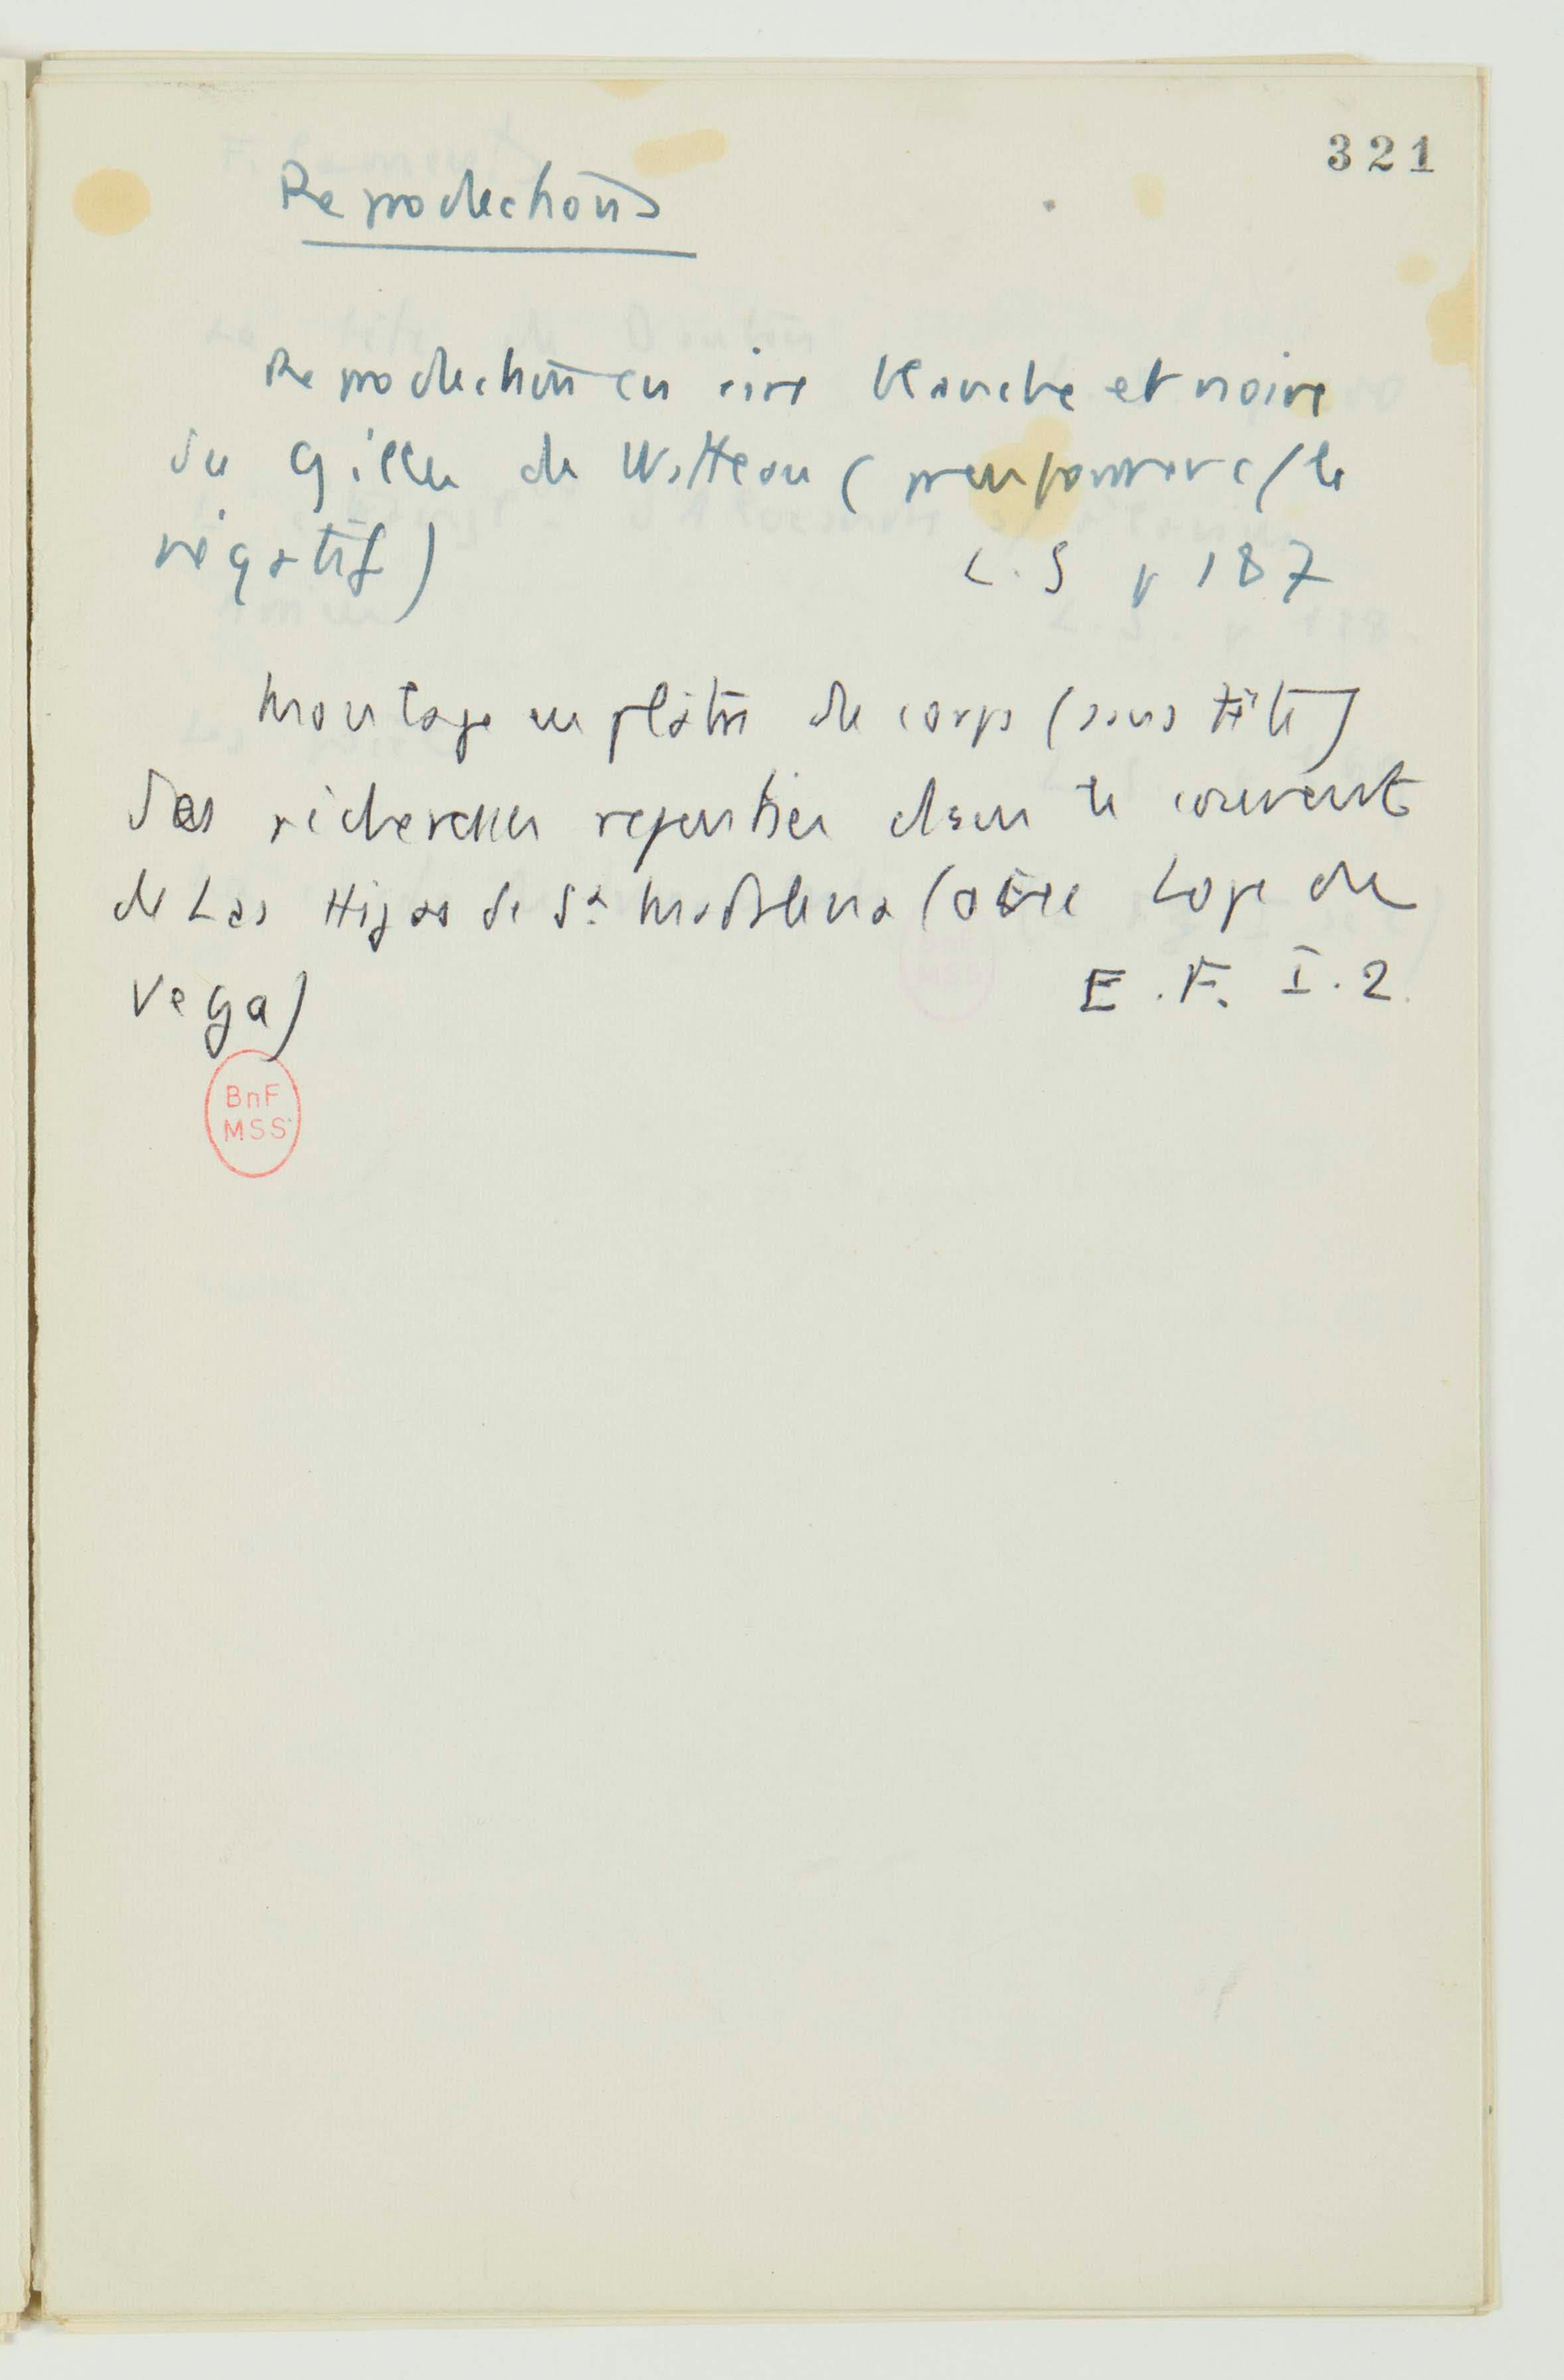 321
Reproductions
Reproduction en cire blanche et noire
du Gilles de Watteau (pour
négatif)
L. S p 187
Montage en plâtre de corps (sans tête)
des pécheresses repenties dans le couvent
de Las Hijas de Sta Madalena (cite Lope de
Vega)
E. F. I. 2.
BnF
MSS